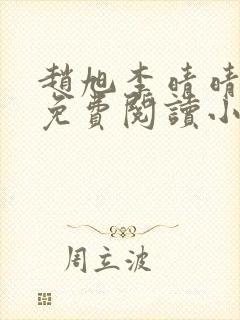 趙旭李晴晴
免費閱讀小
周立波